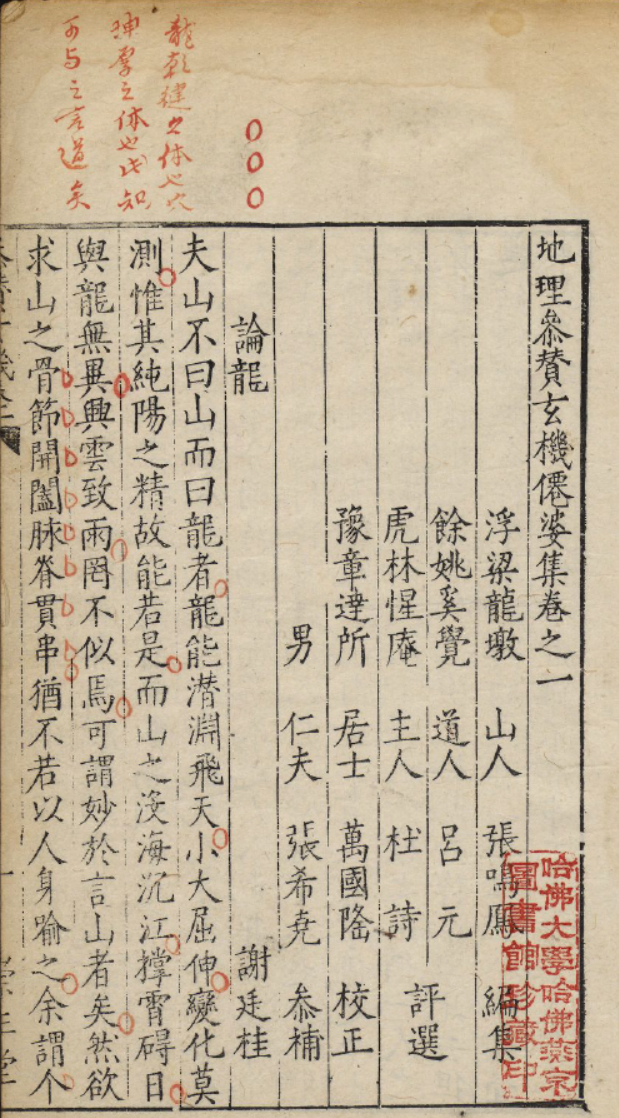 地理參贊玄機僊婆集卷之一
浮梁龍墩 山人 張鳴鳳 編集
餘姚奚覺 道人 呂元
虎林惺庵 主人 杜詩 評選
豫章達所 居士 萬國隆 校正
男 仁夫 張希堯 叅補
論龍 謝廷桂
夫山不曰山而曰龍者龍能潛淵飛天小大屈伸變化莫
測惟其純陽之精故能若是而山之沒海沉江撐霄碍日
與龍無異興雲致雨罔不似焉可謂妙於言山者矣然欲
求山之骨節開闔脉脊貫串猶不若以人身喻之余謂个
龍乾健之体也穴
坤厚之体也
知
可与之言道矣
哈佛大學哈佛燕京
圖書館珍藏印